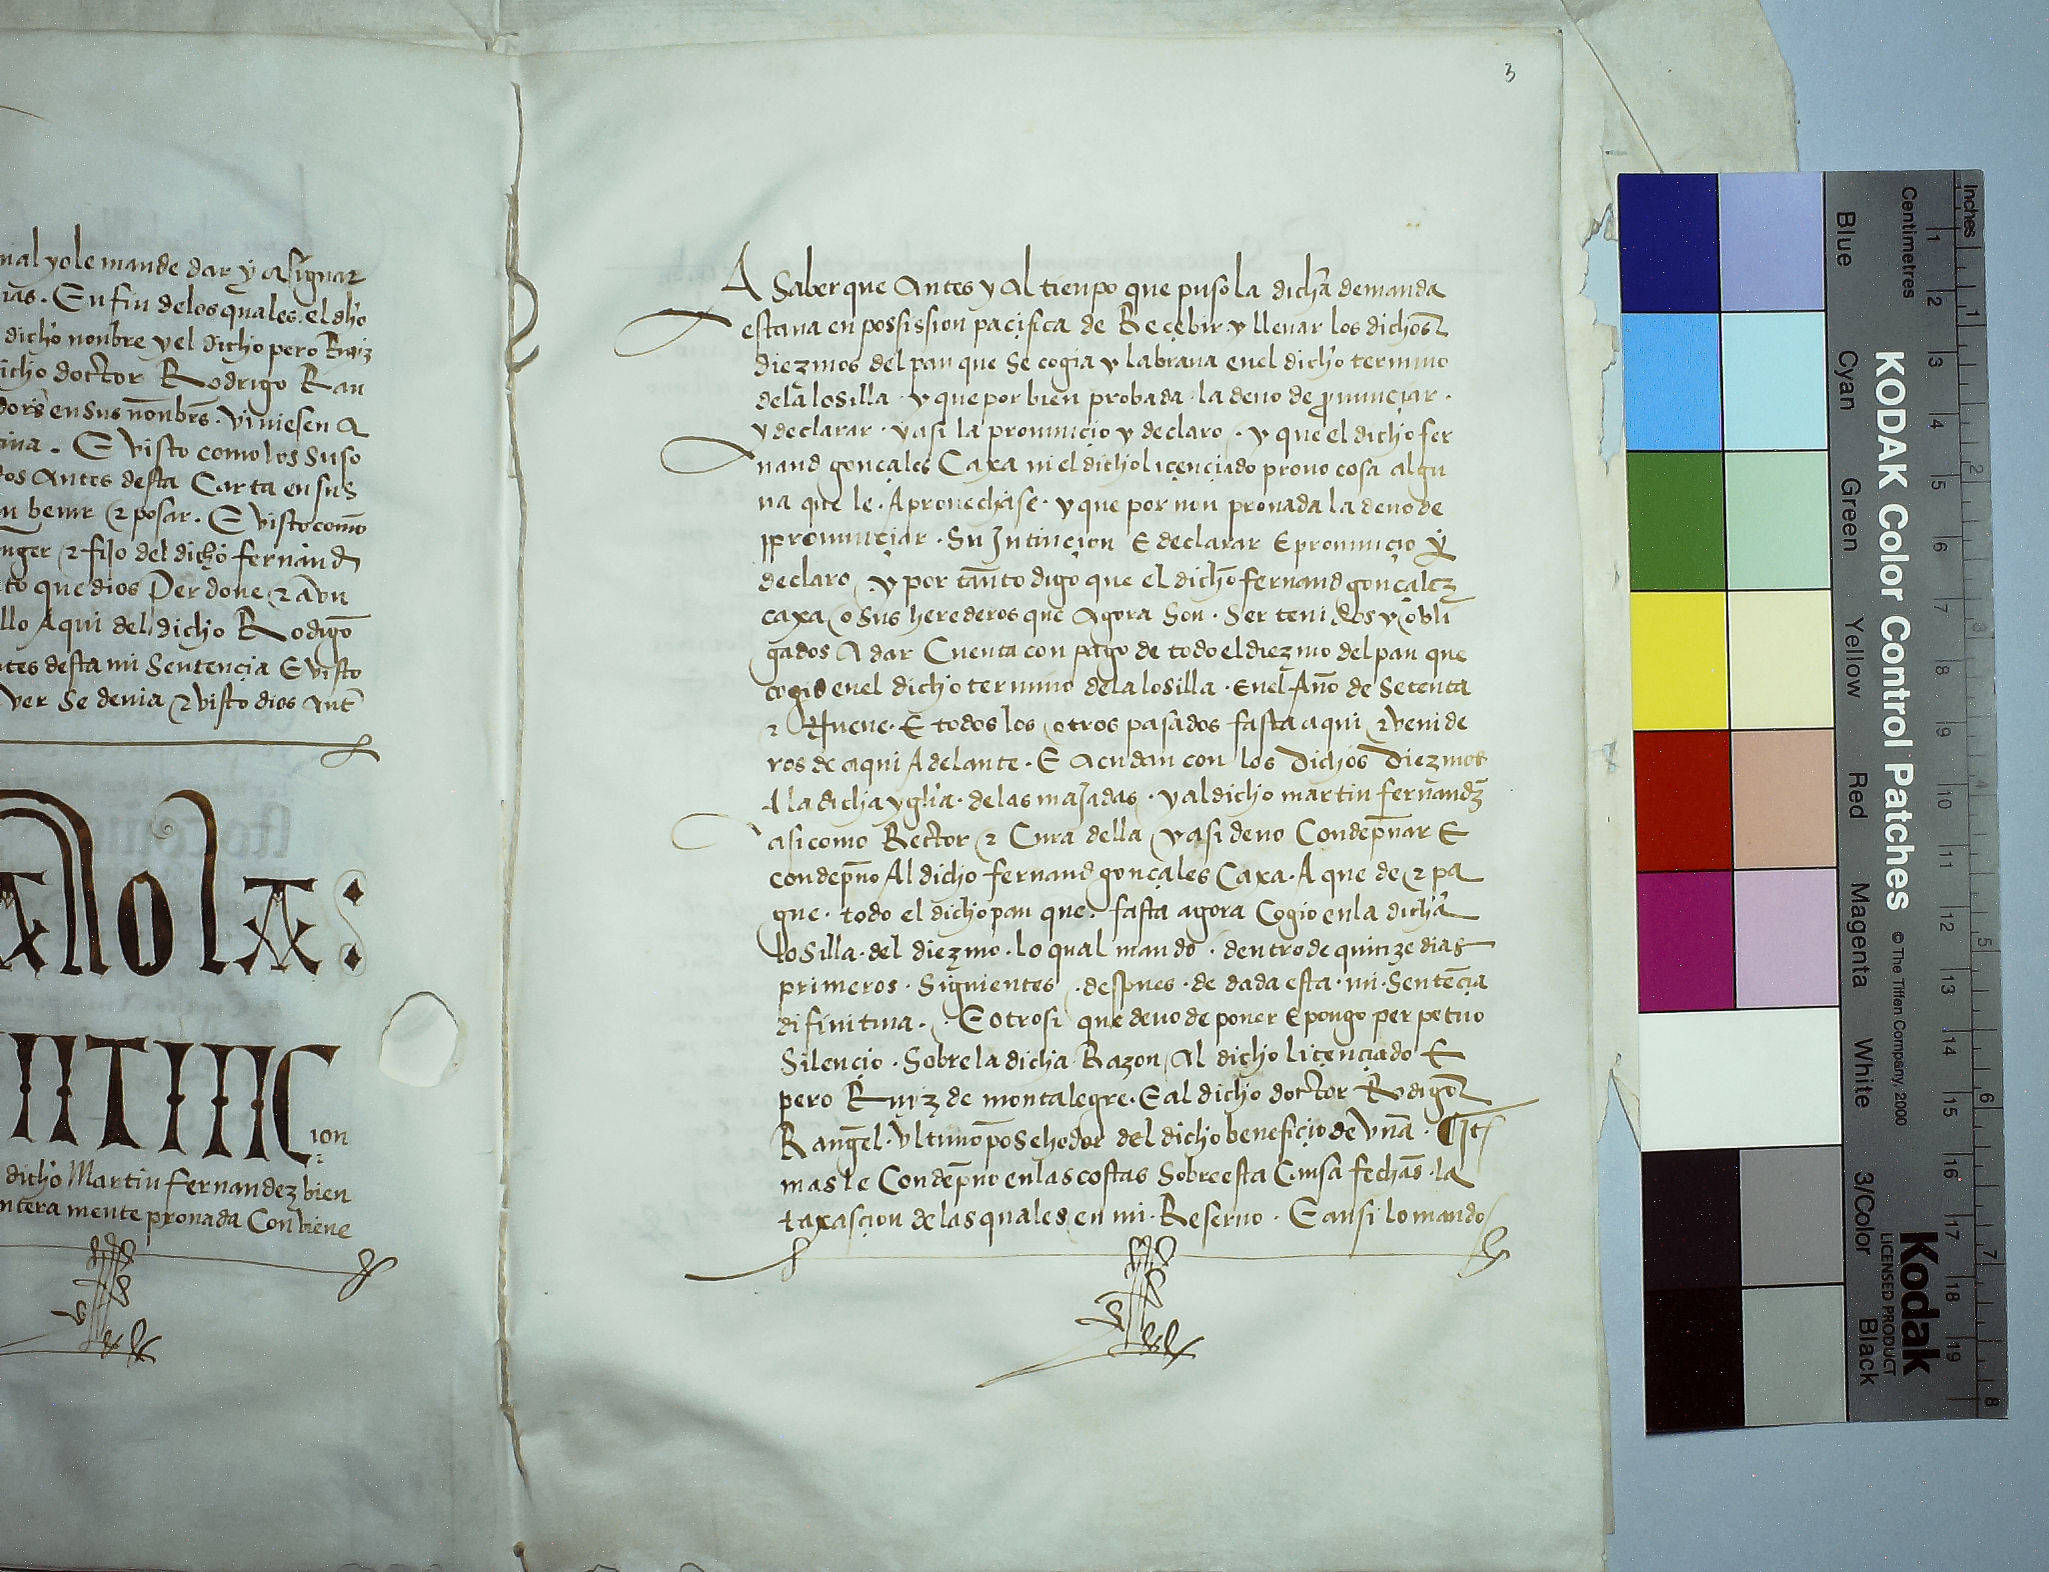 nal yo le mande dar y asignar
ias. En fin de los quales. el dho
dicho nonbre y el dicho pero Ruiz
icho doctor Rodrigo Ran
dors en sus nonbrs. viniesen a
tiva. E visto como los suso
dos Antes desta Carta en sus
n benir & posar. E visto como
nger & fijo del dicho fernand
to que dios Perdone & a vn
llo Aqui del dicho Rodigo
ntes desta mi Sentençia E visto
ver Se devia & visto dios ante
ion
dicho Martin fernandez bien
ntera mente provada Conbiene
3
A Saber que Antes y Al tienpo que puso la dicha demanda
estava en possission paçifica de Reçebir y llevar los dichos
diezmos del pan que Se cogia y labrava en el dicho termino
de la losilla. y que por bien probada. la devo de pronunçiar.
y declarar. y asi la pronunçio y declaro. y que el dicho fer
nand gonçales Caxa ni el dicho liçençiado provo cosa algu
na que le. Aprovechase. y que por non provada la devo de
pronunçiar. Su Jntinçion E declarar E pronunçio y
declaro y por tanto digo que el dicho fernand gonçalez
caxa o sus herederos que Agora Son. Ser tenidos y obli
gados A dar Cuenta con pago de todo el diezmo del pan que
cogio en el dicho termino de la losilla. En el Año de Setenta
& Nueve. E todos los otros pasados fasta aqui & venide
ros de aqui Adelante. E acudan con los Dichos Diezmos
A la dicha yglia. de las majadas. y al dicho martin fernandz
asi como Rector & Cura della y asi devo Condepnar E
condepno Al dicho fernand gonçales Caxa. A que de & pa
gue. todo el dicho pan que. fasta agora Cogio en la dicha
losilla. del diezmo. lo qual mando. dentro de quinze dias
primeros. Siguientes. despues. de dada esta. mi. Sentençia
difinitiva. E otrosi que devo de poner E pongo perpetuo
Silençio. Sobre la dicha Razon Al dicho liçençiado E
pero Ruiz de montalegre. E al dicho doctor Rodigo
Rangel. vltimo posehedor del dicho benefiçio de vna.
mas le Condepno en las costas Sobre esta Causa fechas. la
taxasçion de las quales en mi. Reservo. E ansi lo mando
KODAK Color Control Patches
© The Tiffen Company, 2000
Kodak
LICENSED PRODUCT
Blue Cyan Green Yellow Red Magenta White 3/Color Black
Centimetres 1 2 3 4 5 6 7 8 9 10 11 12 13 14 15 16 17 18 19
Inches 1 2 3 4 5 6 7 8